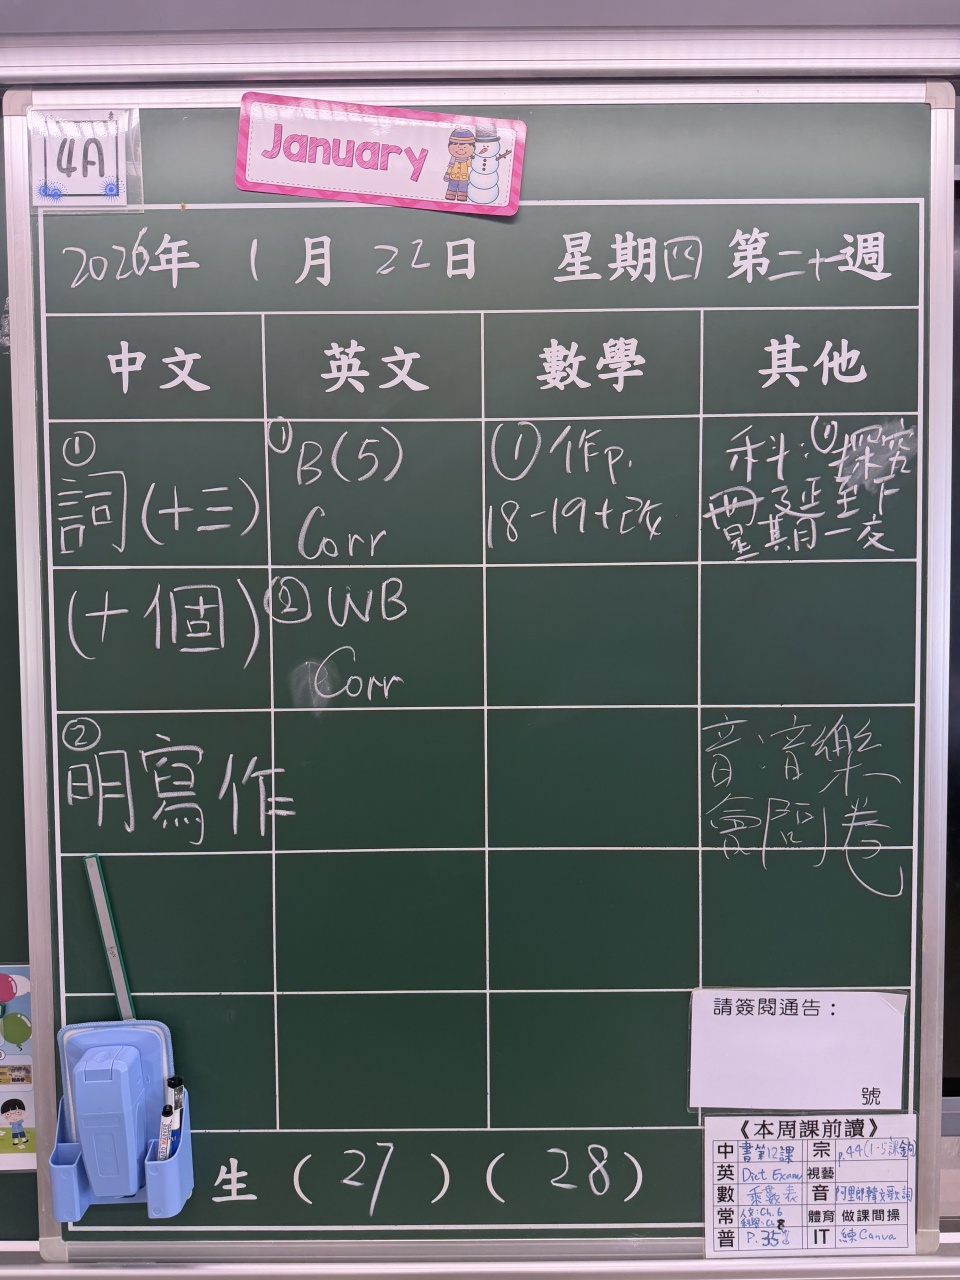 4A
January
2026年 1月 22日 星期四 第二十一週
中文 英文 數學 其他
①
詞(十三)
(十個)
②
明寫作
① B(5)
Corr
② WB
Corr
① 作p.
18-19+改
科:① 探究
延至下
星期一交
音:音樂
會問卷
生 (27) (28)
請簽閱通告:
號
《本周課前讀》
中 書第12課 宗 p.44(1-5課金句)
英 Dict Exam 視藝
數 乘數表 音 阿里郎韓文歌詞
常 人文:Ch.6 體育 做課間操
普 P.35 IT 練Canva